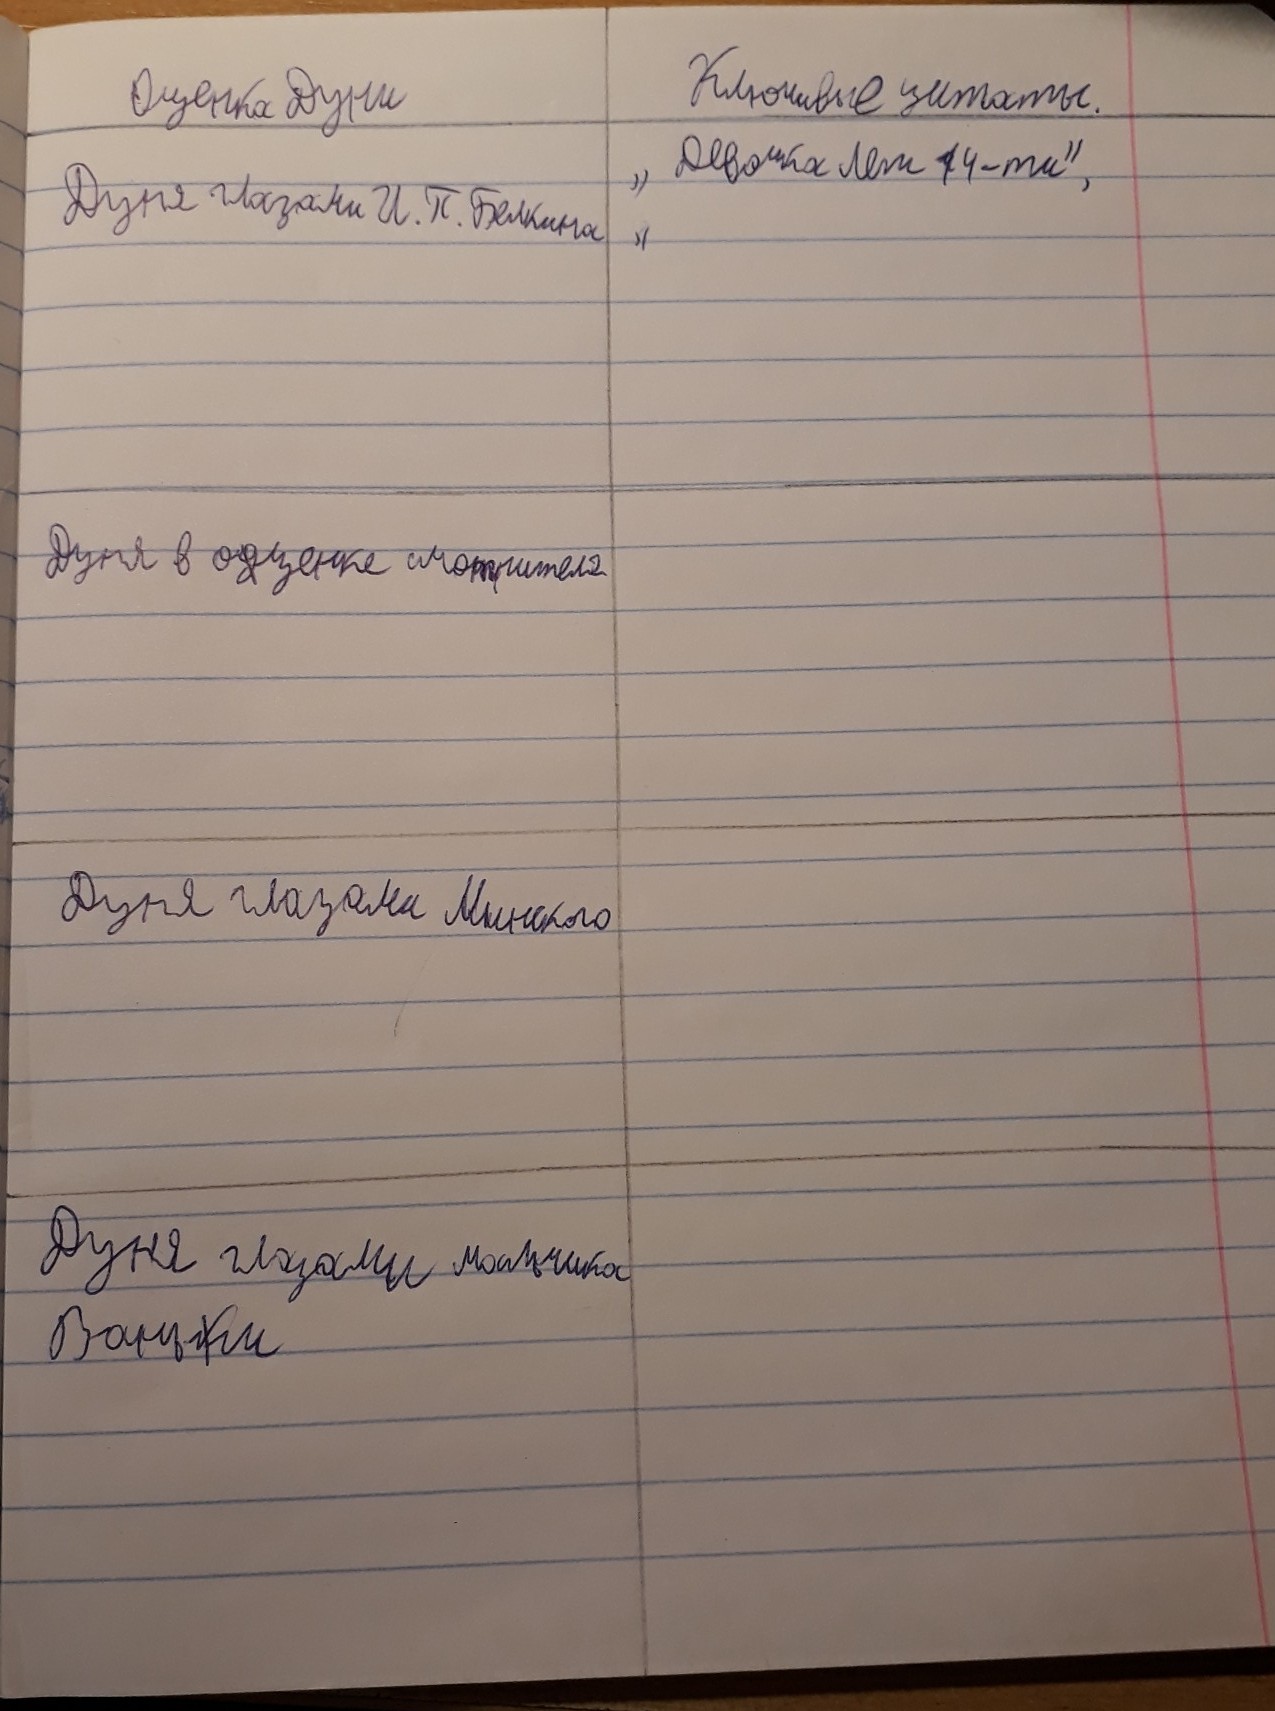 Оценка Дуни
Ключивые цитаты.
Дуня глазами И. П. Белкина
„ Девочка лет 14-ти",
"
Дуня в оценке смотрителя
Дуня глазами Минского
Дуня глазами мальчика
Ваньки